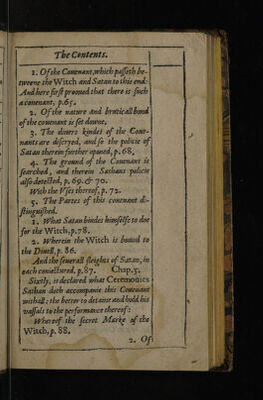 The Contents.
1. Of the Couenant, which passeth be-
tweene the Witch and Satan to this end:
And here first prooued that there is such
a couenant, p.65.
2. Of the nature and bruticall bond
of the couenant is set downe.
3. The diuers kindes of the Coue-
nants are discryed, and so the policie of
Satan therein further opened, p.68.
4. The ground of the Couenant is
searched, and therein Sathans policie
also detected, p.69.& 70.
With the Vses thereof, p.72.
5. The Parties of this couenant di-
stinguished.
1. What Satan bindes himselfe to doe
for the Witch, p.78.
2. Wherein the Witch is bound to
the Diuell, p.86.
And the seuerall sleights of Satan, in
each coniectured, p.87. Chap.5.
Sixtly, is declared what Ceremonies
Sathan doth accompanie this Couenant
withall: the better to detaine and hold his
vassals to the performance thereof:
Whereof the secret Marke of the
Witch, p.88.
2. Of